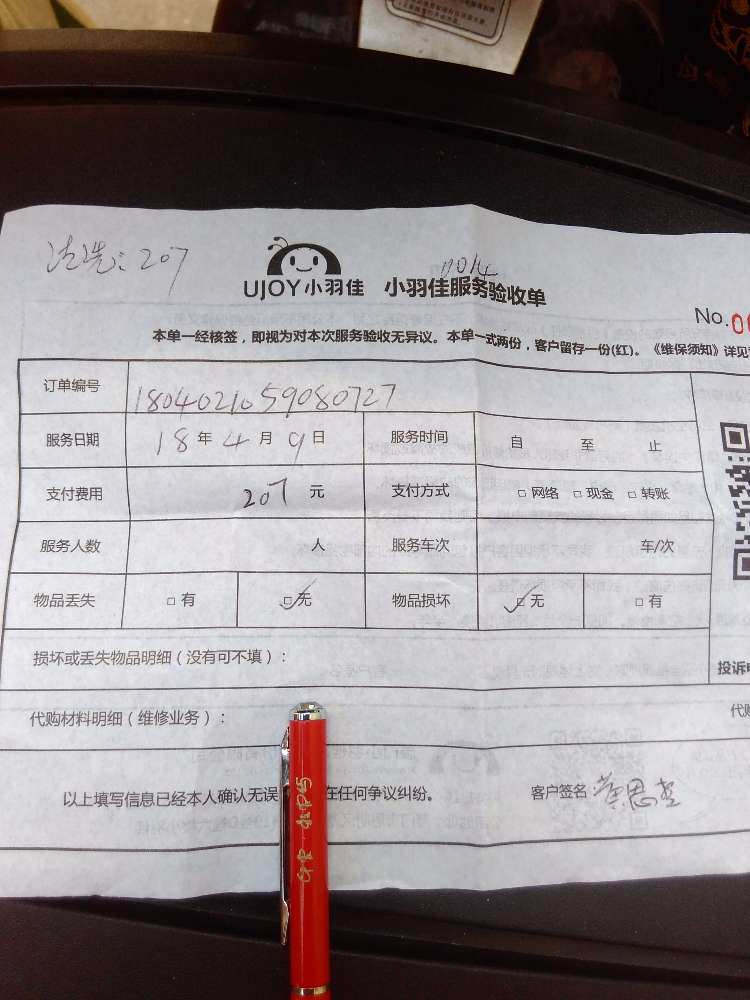 清洗：207
0014
UJOY小羽佳 小羽佳服务验收单
No.
本单一经核签，即视为对本次服务验收无异议。本单一式两份，客户留存一份(红)。《维保须知》详见
订单编号 1804021059080727
服务日期 18年4月9日 服务时间 自 至 止
支付费用 207元 支付方式 □网络 □现金 □转账
服务人数 人 服务车次 车/次
物品丢失 □有 ☑无 物品损坏 ☑无 □有
损坏或丢失物品明细（没有可不填）：
投诉电
代购材料明细（维修业务）：
代购
以上填写信息已经本人确认无误 在任何争议纠纷。 客户签名